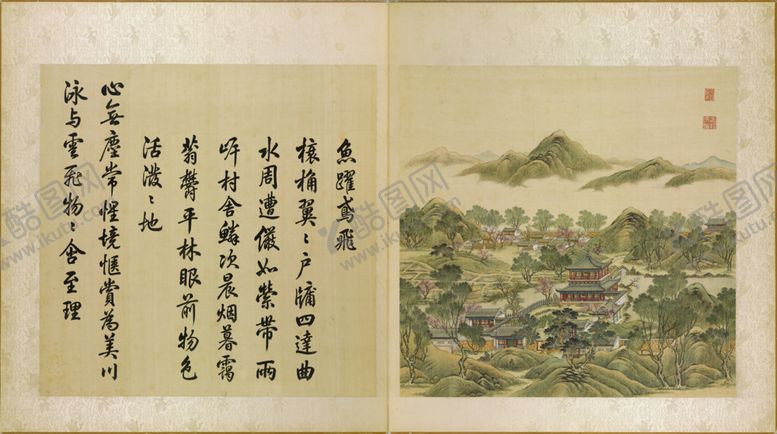 魚躍鳶飛
榱桷翼〻戶牖四達曲
水周遭儼如縈帶兩
岸村舍鱗次晨烟暮靄
蓊欝平林眼前物色
活潑〻地
心無塵常惺境愜賞為美川
泳與雲飛物〻含至理